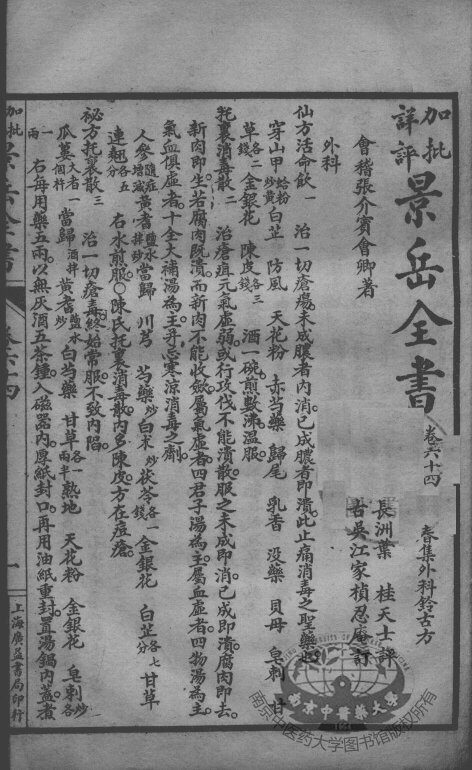 加批
詳評
景岳全書
卷六十四
春集外科鈐古方
會稽張介賓會卿著
長洲葉 桂天士評
古吳江家楨忍庵訂
外科
仙方活命飲一 治一切瘡瘍未成膿者內消已成膿者即潰此止痛消毒之聖藥也
穿山甲蛤粉炒黃 白芷 防風 天花粉 赤芍藥 歸尾 乳香 沒藥 貝母 皂刺 甘
草各二錢 金銀花 陳皮各三錢 酒一碗煎數沸溫服
托裏消毒散二 治瘡疽元氣虛弱或行攻伐不能潰散服之未成即消已成即潰腐肉即去
新肉即生若腐肉既潰而新肉不能收斂屬氣虛者四君子湯為主屬血虛者四物湯為主
氣血俱虛者十全大補湯為主并忌寒涼消毒之劑
人參隨症增減 黃耆鹽水拌炒 當歸 川芎 芍藥炒 白朮炒 茯苓各一錢 金銀花 白芷各七分 甘草
連翹各五分
右水煎服○陳氏托裏消毒散內多陳皮方在痘瘡
秘方托裏散三 治一切瘡毒終始常服不致內陷
瓜蔞大者一個杵 當歸酒拌 黃耆鹽水炒 白芍藥 甘草各一兩半 熟地 天花粉 金銀花 皂刺炒各
一兩
右每用藥五兩以無灰酒五茶鍾入磁器內厚紙封口再用油紙重封置湯鍋內蓋煮
加批
景岳全書
卷六十四
一
上海廣益書局印行
南京中醫藥大學
南京中医药大学图书馆版权所有